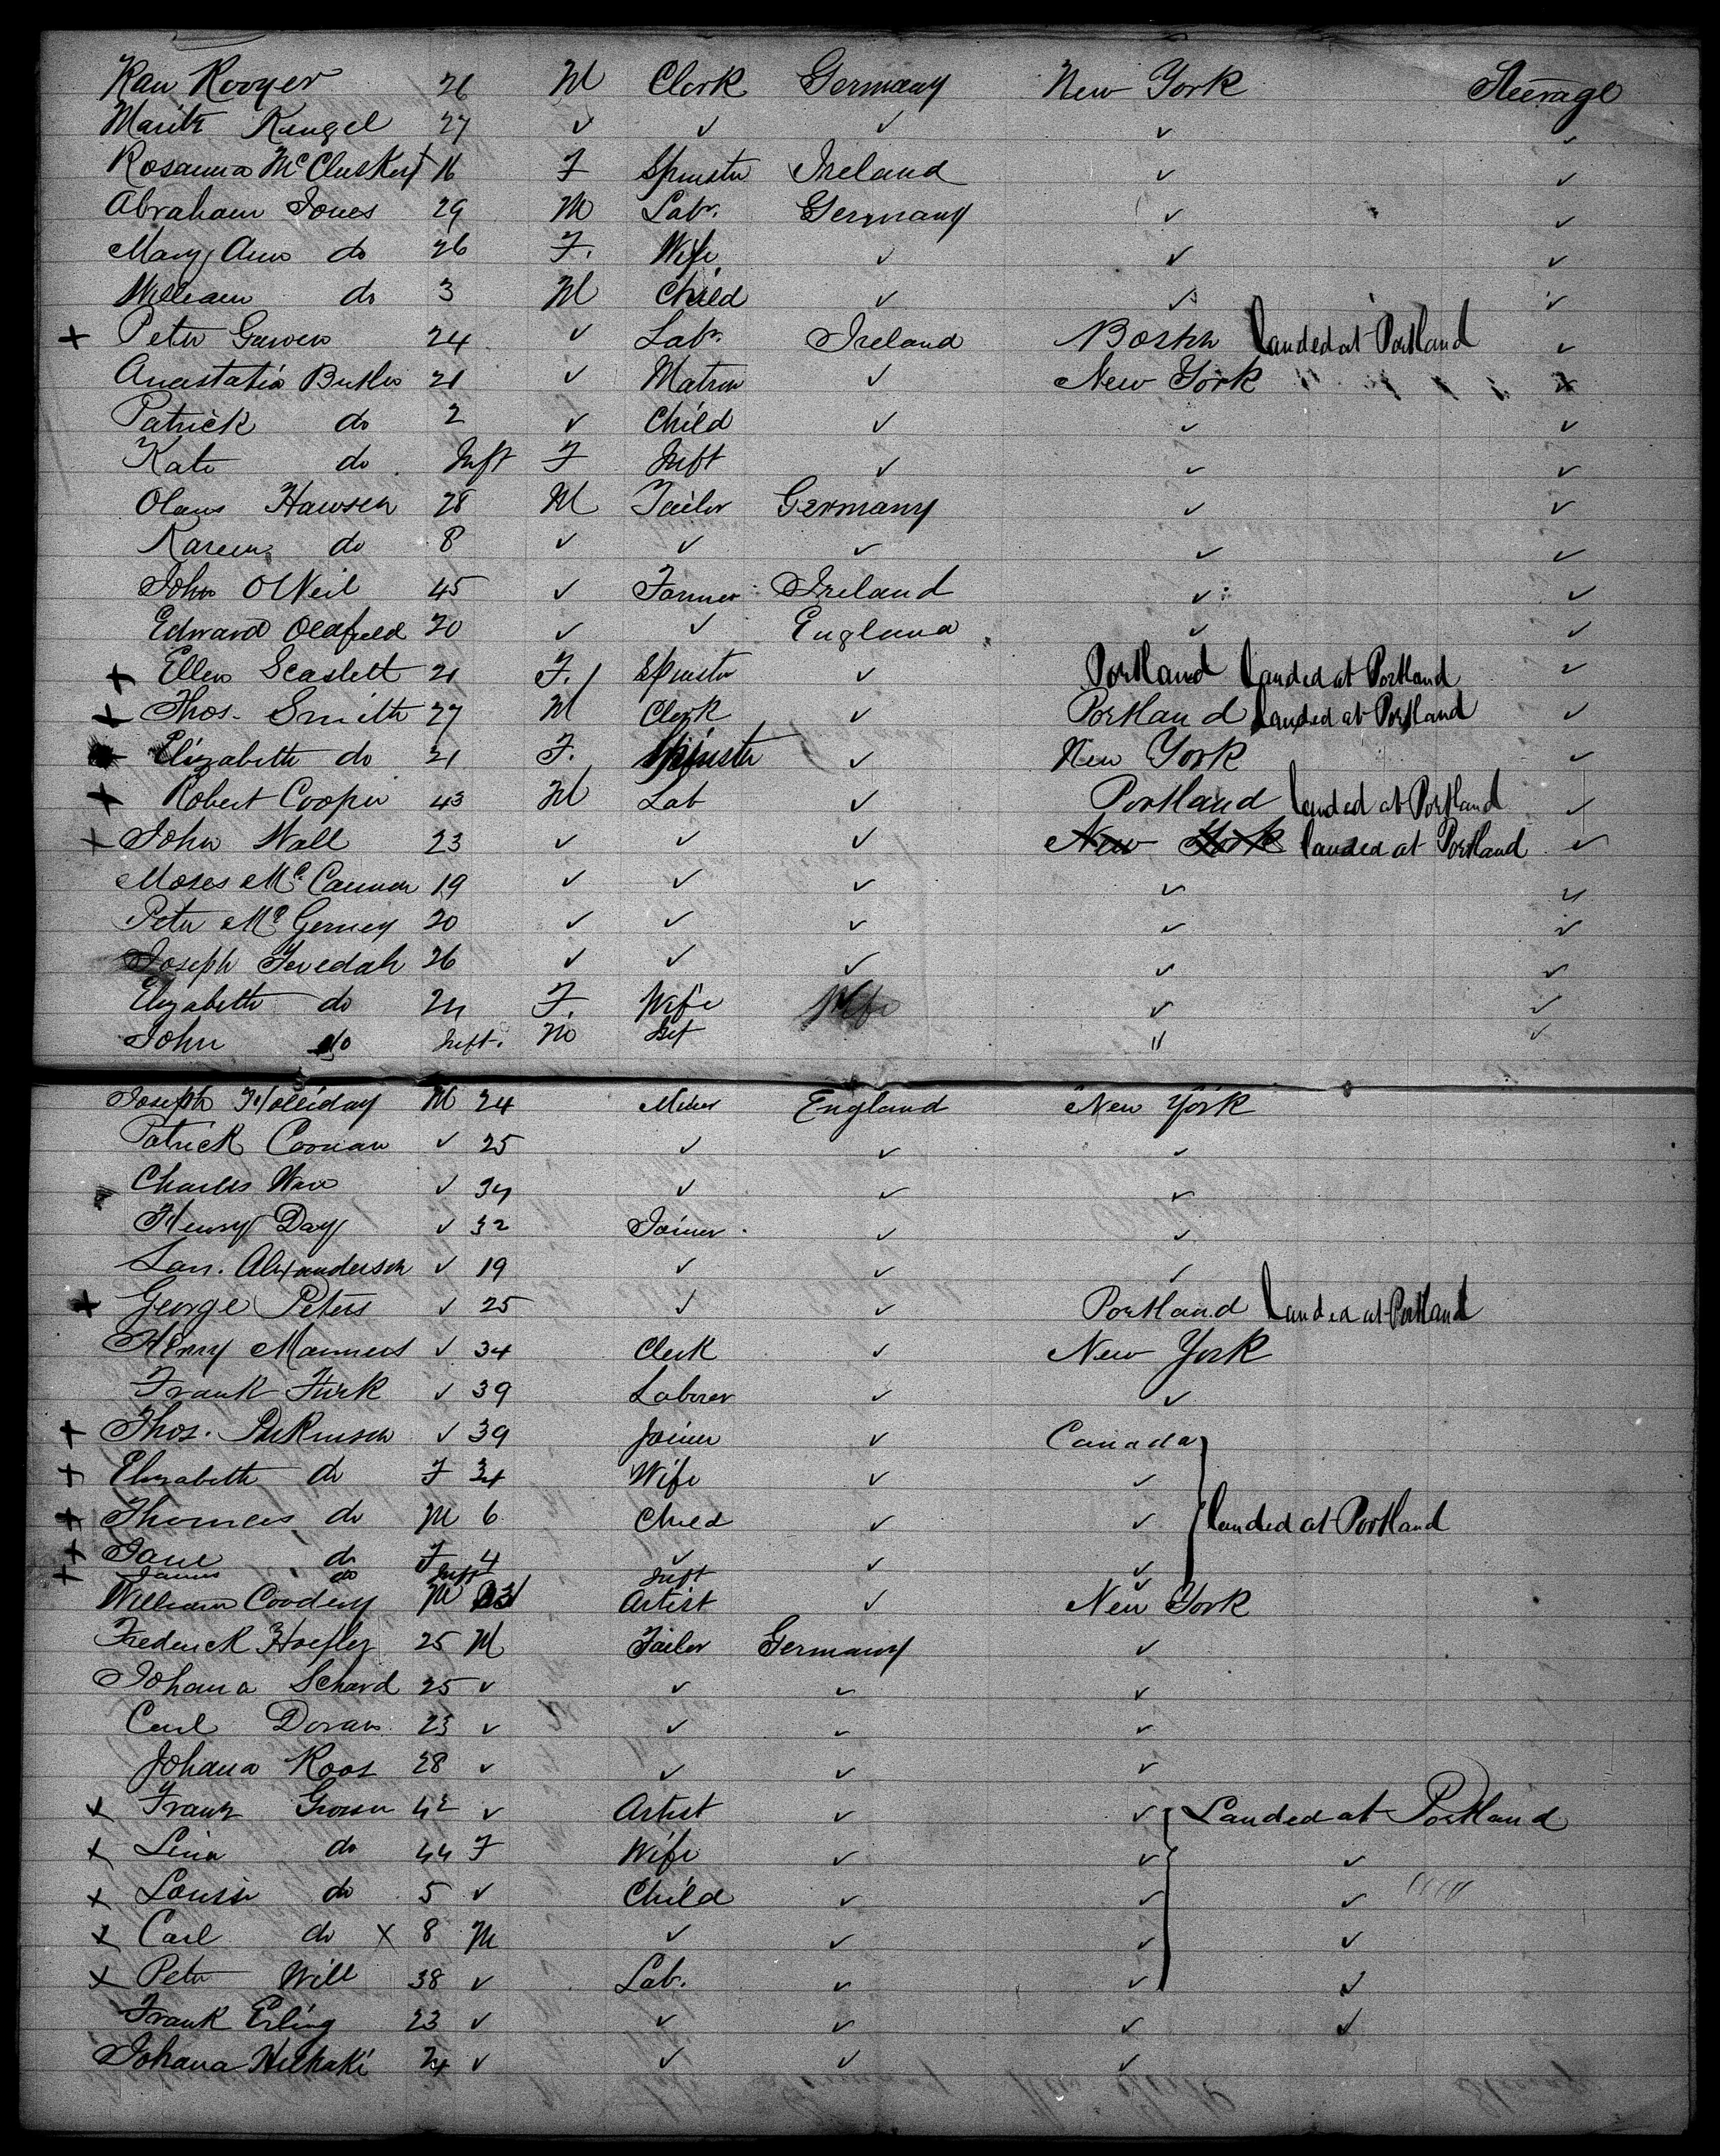 Kau Rooyer 26 M Clerk Germany New York Steerage
Maritz Kungel 27 ✓ ✓ ✓ ✓ ✓
Rosanna McCluskey 16 F Spinster Ireland ✓ ✓
Abraham Jones 29 M Labr. Germany ✓ ✓
Mary Ann do 26 F. Wife ✓ ✓ ✓
William do 3 M Child ✓ ✓ ✓
+ Peter 24 ✓ Labr. Ireland Boston landed at Portland ✓
Anastatia Butler 21 ✓ Matron ✓ New York
Patrick do 2 ✓ Child ✓ ✓ ✓
Kate do Inft F Inft ✓ ✓ ✓
Olaus Hawsen 28 M Tailor Germany ✓ ✓
Kareen do 8 ✓ ✓ ✓ ✓ ✓
John O Neil 45 ✓ Farmer Ireland ✓ ✓
Edward Oldfield 20 ✓ ✓ England ✓ ✓
+ Ellen Scaslett 21 F. Spinster ✓ Portland landed at Portland ✓
+ Thos. Smith 27 M Clerk ✓ Portland landed at Portland ✓
Elizabeth do 21 F. Spinster ✓ New York ✓
+ Robert Cooper 43 M Lab ✓ Portland landed at Portland ✓
+ John Wall 23 ✓ ✓ ✓ New York landed at Portland ✓
Moses Mc Cannon 19 ✓ ✓ ✓ ✓ ✓
Peter Mc Gerney 20 ✓ ✓ ✓ ✓ ✓
Joseph Teredah 26 ✓ ✓ ✓ ✓ ✓
Elizabeth do 24 F. Wife Wife ✓ ✓
John do Inft. M Inft " ✓
Joseph Holliday M 24 Miner England New York
Patrick Coonan ✓ 25 ✓ ✓ ✓
Charles Ware ✓ 34 ✓ ✓ ✓
Henry Day ✓ 32 Joiner ✓ ✓
Lan. Alexanderson ✓ 19 ✓ ✓ ✓
+ George Peters ✓ 25 ✓ ✓ Portland landed at Portland
Henry Manners ✓ 34 Clerk ✓ New York
Frank Turk ✓ 39 Laborer ✓ ✓
+ Thos. Parkinson ✓ 39 Joiner ✓ Canada
+ Elizabeth do F 34 Wife ✓ ✓
+ Thomas do M 6 Child ✓ ✓ landed at Portland
+ Jane do F 4 ✓ ✓ ✓
+ James do Inft Inft ✓
William Coodery M Artist ✓ New York
Frederick Hoefler 25 M Tailor Germany ✓
Johana Schard 25 ✓ ✓ ✓ ✓
Carl Doran 23 ✓ ✓ ✓ ✓
Johana Roos 28 ✓ ✓ ✓ ✓
x Franz Grosen 42 ✓ Artist ✓ ✓ Landed at Portland
x Lina do 44 F Wife ✓ ✓ ✓
x Louise do 5 ✓ Child ✓ ✓ ✓
x Carl do x 8 M ✓ ✓ ✓ ✓
x Peter Will 38 ✓ Lab. ✓ ✓ ✓
Frank Erling 23 ✓ ✓ ✓ ✓ ✓
Johana 24 ✓ ✓ ✓ ✓